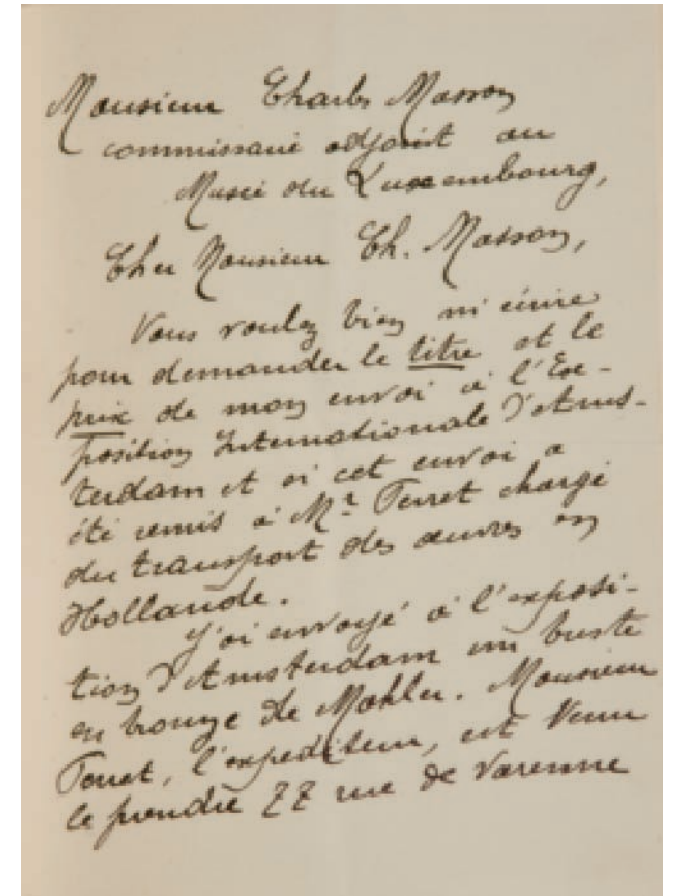 Monsieur Charles Masson
commissaire adjoint au
Musée du Luxembourg,
Cher Monsieur Ch. Masson,
Vous voulez bien m'écrire
pour demander le titre et le
prix de mon envoi à l'Ex-
position Internationale d'Ams-
terdam et si cet envoi a
été remis à Mr. Ferret chargé
du transport des œuvres en
Hollande.
J'ai envoyé à l'exposi-
tion d'Amsterdam un buste
en bronze de Mahler. Monsieur
Ferret, l'expediteur, est venu
le prendre 77 rue de Varenne